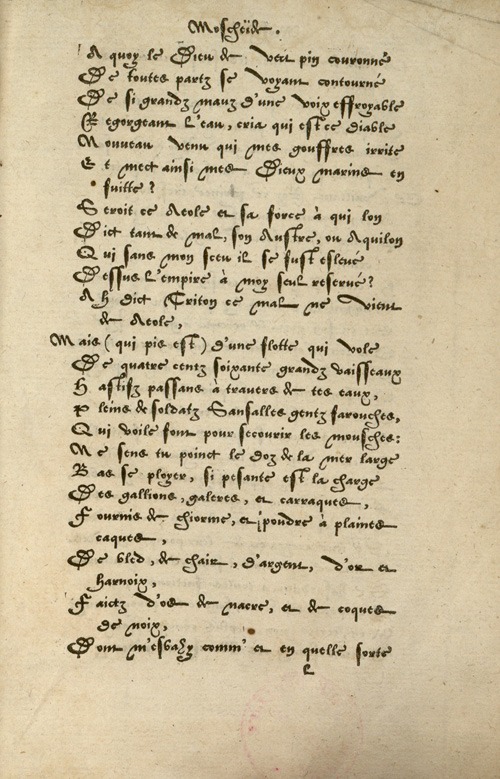 Moscheïde.
A quoy le Dieu de vert pin couronné
De toutes partz se voyant contourné
De si grandz mauz d'une voix effroyable
Regorgeant l'eau, cria qui est ce diable
Nouveau venu qui mes gouffres irrite
Et mect ainsi mes Dieux marins en
fuitte?
Seroit ce Aeole et sa force à qui lon
Dict tant de mal, son Austre, ou Aquilon
Qui sans mon sceu il se fust eslevé
Dessus l'empire à moy seul reservé?
Ah dict Triton ce mal ne vient
de Aeole,
Mais (qui pis est) d'une flotte qui vole
De quatre centz soixante grandz vaisseaux
Hastifz passans à travers de tes eaux,
Pleins de soldatz Sansalles gentz farouches,
Qui voile font pour secourir les mousches:
Ne sens tu poinct le doz de la mer large
Bas se ployer, si pesante est la charge
Des gallions, galeres, et carraques,
Fournis de chiorme, et poudre à plaines
caques,
De bled, de chair, d'argent, d'or et
harnoix,
Faictz d'os de nacre, et de coques
de noix,
Dont m'esbahy comm' et en quelle sorte
L